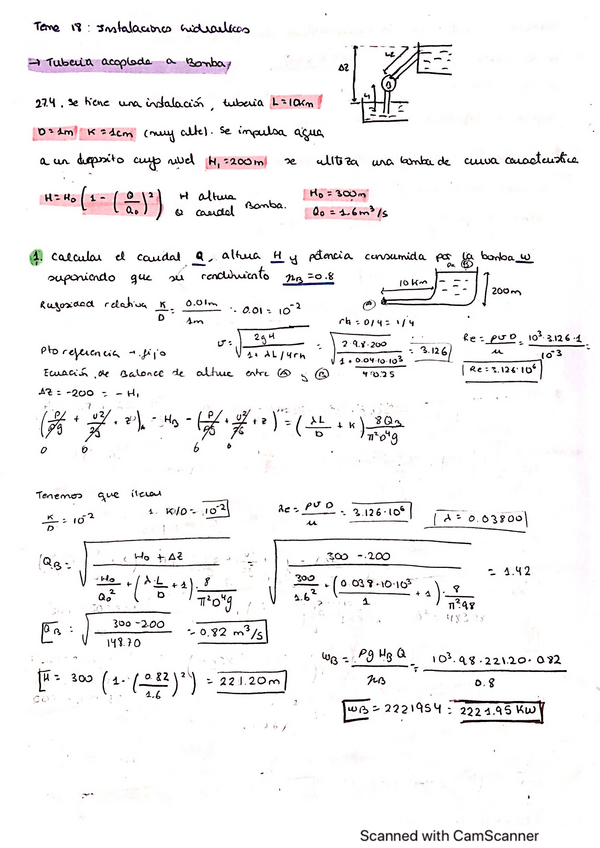 Tema 18: Instalaciones hidraulicas
→ Tuberia acoplada a Bomba
ΔZ
B
27.4. se tiene una instalación, tuberia L=10Km
D=1m K=1cm (muy alta). Se impulsa agua
a un deposito cuyo nivel H₁=200m se utiliza una bomba de curva caracteristica
H=H₀(1-(Q/Q₀)²) H altura Q caudal Bomba. H₀=300m Q₀=1.6m³/s
1. Calcular el caudal Q, altura H y potencia consumida por la bomba W
suponiendo que su rendimiento ηB=0.8
10 Km
200m
Rugosidad relativa K/D = 0.01m/1m = 0.01 = 10⁻²
rh = D/4 = 1/4
v = √(2gH / (1+λL/4rh)) = √(2·9.8·200 / (1+0.04·10·10³/4·0.25)) = 3.126
Re = ρvD/μ = 10³·3.126·1/10⁻³ =
Re = 3.126·10⁶
Pto referencia → fijo
Ecuación de Balance de altura entre Ⓐ y Ⓑ
ΔZ = -200 = -H₁
(P/ρg + v²/2g + z)A - HB - (P/ρg + v²/2g + z) = (λL/D + K) 8QB/π²D⁴g
0 0 0 0
Tenemos que iterar
K/D = 10⁻² 1. K/D = 10⁻² Re = ρvD/μ = 3.126·10⁶ λ = 0.03800
QB = √((H₀ + ΔZ) / (H₀/Q₀² + (λ·L/D + 1) 8/π²D⁴g)) = √((300 - 200) / (300/1.6² + (0.038·10·10³/1 + 1)· 8/π²·9.8)) = 1.42
QB = √((300-200)/148.70) = 0.82 m³/s
H = 300 (1-(0.82/1.6)²) = 221.20m
WB = ρg HB Q/ηB = 10³·9.8·221.20·0.82/0.8
WB = 2221954 = 2221.95 KW
Scanned with CamScanner